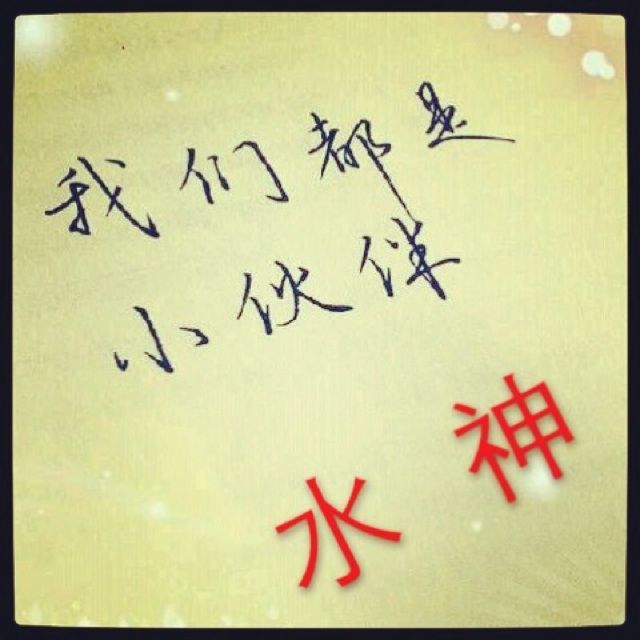 我们都是
小伙伴
水神